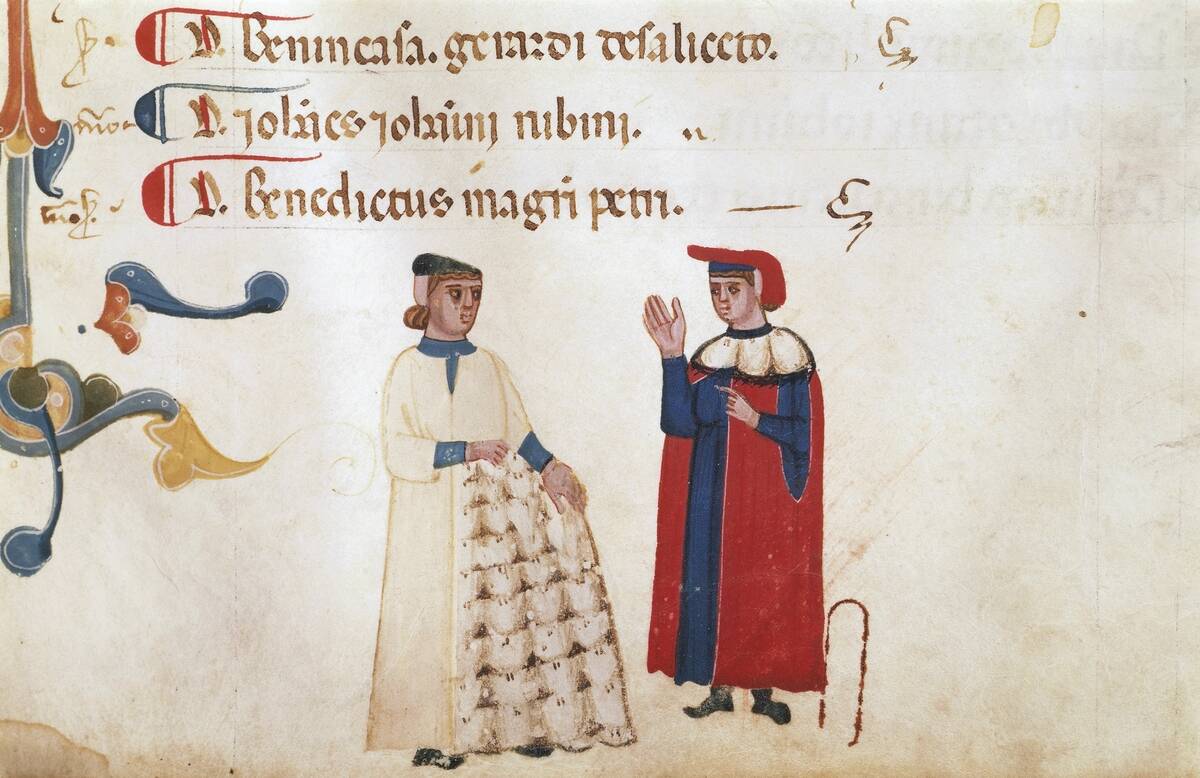 D. Benincasa. gerardi desaliceto.
D. Joħes Joħini rubini.
D. Benedictus magri petri.